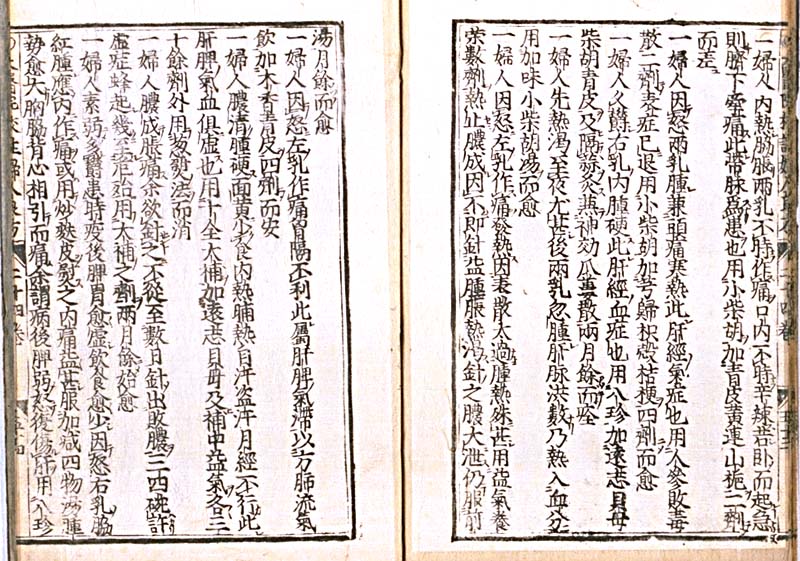 一婦人内熱脇脹兩乳不時作痛口内不時辛辣若卧而起急
則臍下牽痛此帶脉爲患也用小柴胡加青皮黄連山梔二劑
而差
一婦人因怒兩乳腫兼頭痛寒熱此肝經氣症也用人參敗毒
散二劑表症已退用小柴胡加芎歸枳殻桔梗四劑而愈
一婦人久鬱右乳内腫硬此肝經血症也用八珍加遠志貝母
柴胡青皮及隔蒜灸兼神効瓜蔞散兩月餘而痊
一婦人先熱渇至夜尤甚後兩乳忽腫肝脉洪數乃熱入血分
用加味小柴胡湯而愈
一婦人因怒左乳作痛發熱因表散太過腫熱殊甚用益氣養
榮數劑熱止膿成因不即針益腫脹熱渇針之膿大泄仍服前
湯月餘而愈
一婦人因怒左乳作痛胷膈不利此屬肝脾氣滯以方脉流氣
飲加木香青皮四劑而安
一婦人膿清腫硬面黄少食内熱晡熱自汗盗汗月經不行此
肝脾氣血俱虚也用十全大補加遠志貝母及補中益氣各三
十餘劑外用葱熨法而消
一婦人膿成脹痛余欲針之不從至數日針出敗膿三四碗許
虚症蜂起幾至危殆用大補之劑兩月餘始愈
一婦人素弱多鬱患時疫後脾胃愈虚飲食愈少因怒右乳脇
紅腫應内作痛或用炒麩皮熨之内痛益甚服加减四物湯腫
勢愈大胸脇背心相引而痛余謂病後脾弱怒復傷肝用八珍
二十四卷